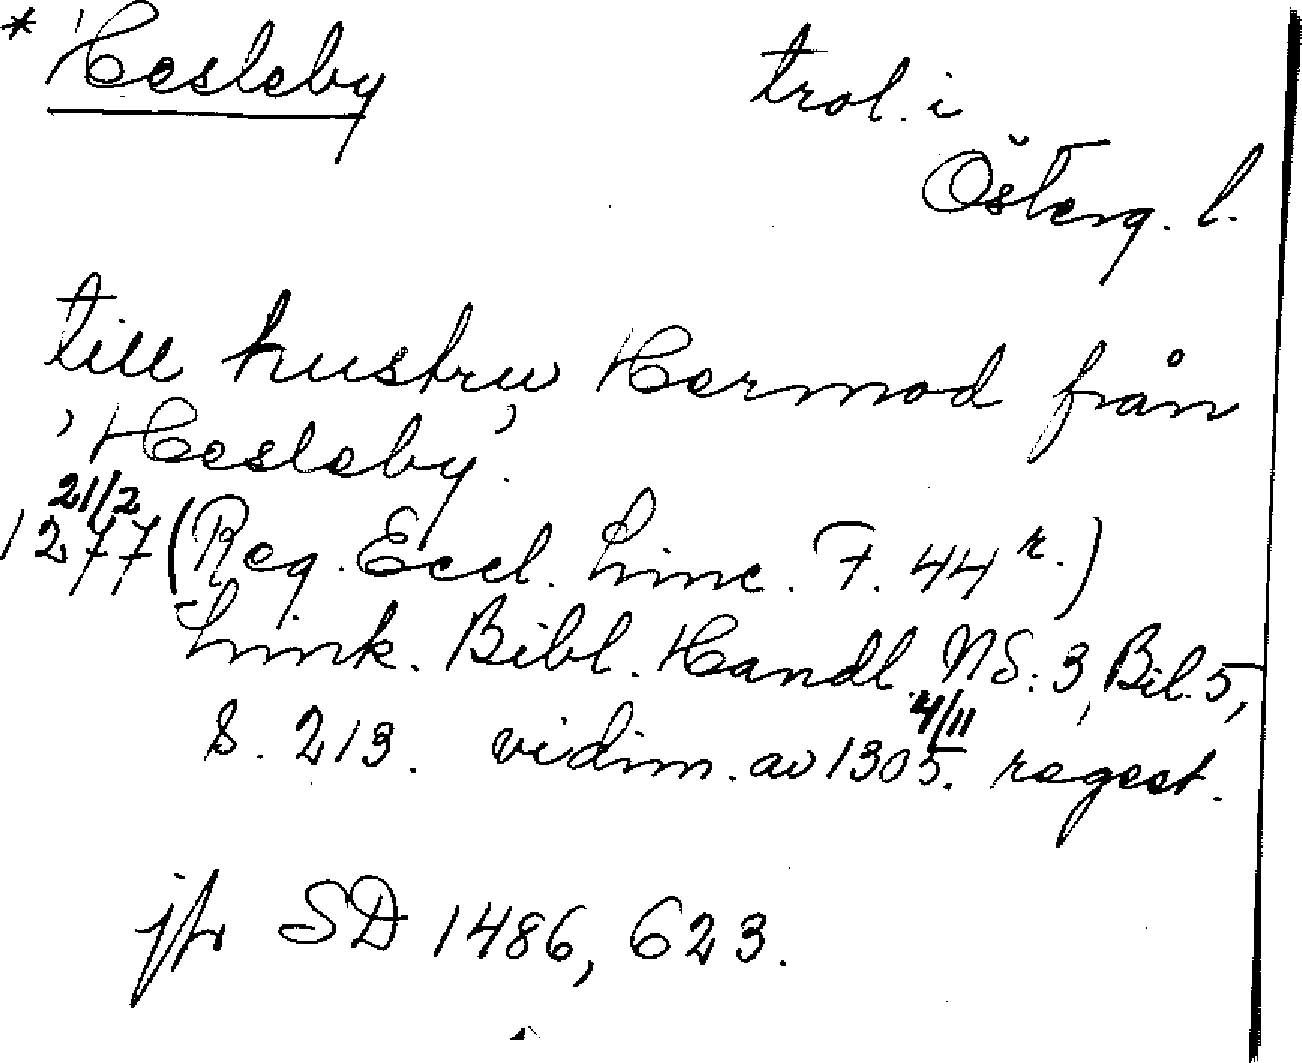 * Hesleby
trol. i
Österg. l.
till hustru Hermod från
'Hesleby'.
21/2
1277 (Reg. Eccl. Linc. F. 44 r.)
Link. Bibl. Handl. NS: 3, Bil. 5,
4/11
S. 213. vidim. av 1305. regest.
jfr SD 1486, 623.